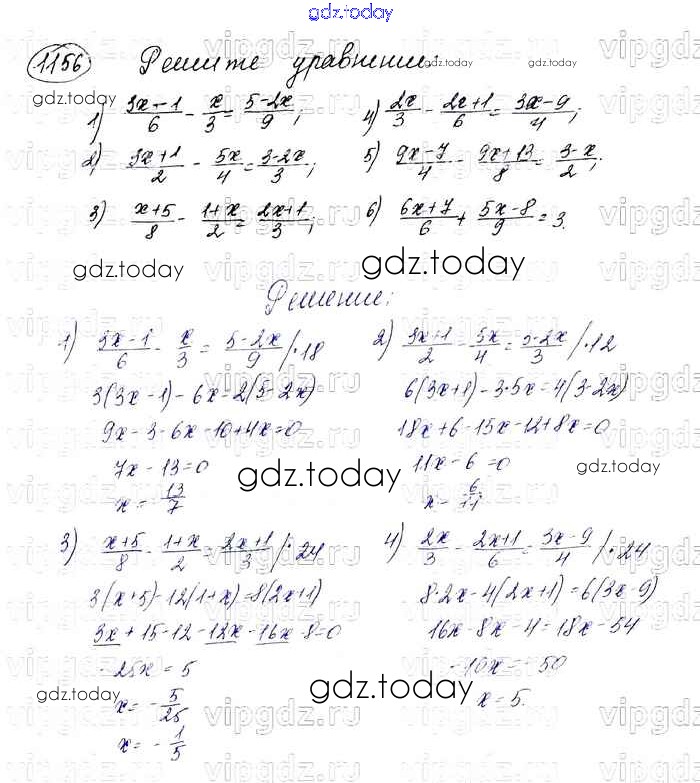 gdz.today
1156 Решите уравнения:
1) (3x-1)/6 - x/3 = (5-2x)/9; 4) 2x/3 - (2x+1)/6 = (3x-9)/4;
2) (3x+1)/2 - 5x/4 = (3-2x)/3; 5) (9x-7)/4 - (9x+13)/8 = (3-x)/2;
3) (x+5)/8 - (1+x)/2 = (2x+1)/3; 6) (6x+7)/6 + (5x-8)/9 = 3.
gdz.today gdz.today
Решение:
1) (3x-1)/6 - x/3 = (5-2x)/9 /·18
3(3x-1)-6x=2(5-2x)
9x-3-6x-10+4x=0
7x-13=0
x=13/7
2) (3x+1)/2 - 5x/4 = (3-2x)/3 /·12
6(3x+1)-3·5x=4(3-2x)
18x+6-15x-12+8x=0
11x-6=0
x=6/11
gdz.today
3) (x+5)/8 - (1+x)/2 = (2x+1)/3 /·24
3(x+5)-12(1+x)=8(2x+1)
3x+15-12-12x-16x-8=0
-25x=5
x=-5/25
x=-1/5
4) 2x/3 - (2x+1)/6 = (3x-9)/4 /·24
8·2x-4(2x+1)=6(3x-9)
16x-8x-4=18x-54
-10x=-50
x=5.
gdz.today
gdz.today